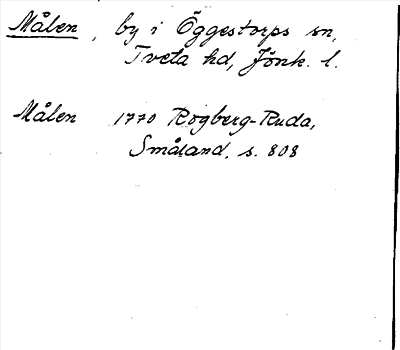 Målen, by i Öggestorps sn,
Tveta hd, Jönk. l.
Målen 1770 Rogberg-Ruda,
Småland, s. 808